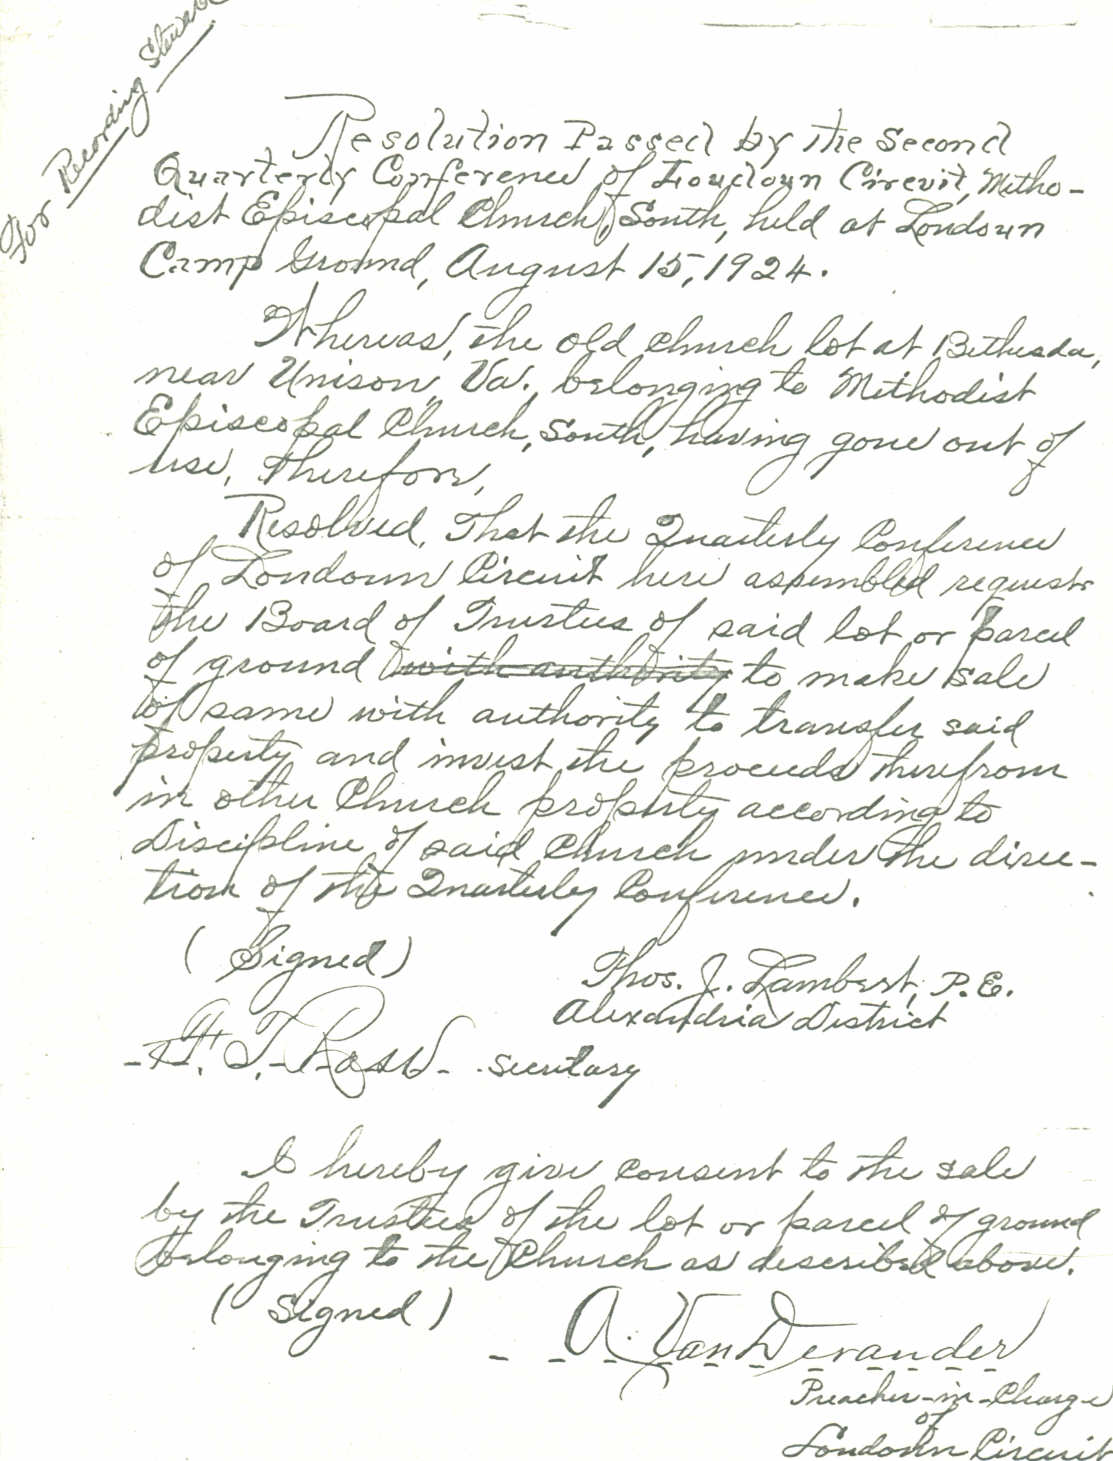 For Recording Steward
Resolution Passed by the Second
Quarterly Conference of Loudoun Circuit, Metho-
dist Episcopal Church, South, held at Loudoun
Camp Ground, August 15, 1924.
Whereas, the old church lot at Bethesda,
near Unison, Va., belonging to Methodist
Episcopal Church, South, having gone out of
use, therefore,
Resolved, That the Quarterly Conference
of Loudoun Circuit here assembled requests
the Board of Trustees of said lot or parcel
of ground with authority to make sale
of same with authority to transfer said
property and invest the proceeds therefrom
in other Church property according to
Discipline of said Church under the direc-
tion of the Quarterly Conference.
(Signed)
Thos. J. Lambert, P.E.
Alexandria District
T. Ross Secretary
I hereby give consent to the sale
by the Trustees of the lot or parcel of ground
belonging to the Church as described above.
(Signed)
A. VanDevander
Preacher-in-Charge
of
Loudoun Circuit